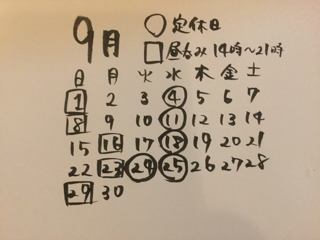 9月
○定休日
□昼なみ14時～21時
日 月 火 水 木 金 土
1 2 3 4 5 6 7
8 9 10 11 12 13 14
15 16 17 18 19 20 21
22 23 24 25 26 27 28
29 30